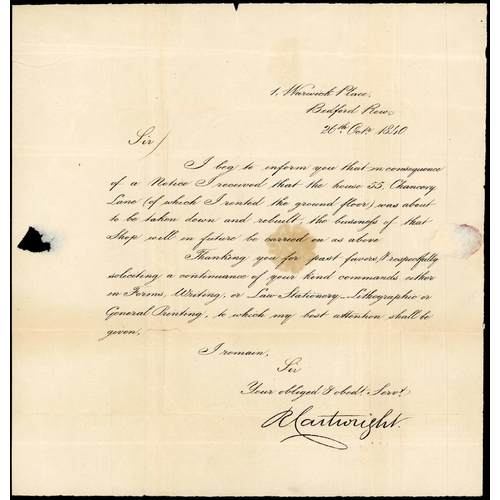 1, Warwick Place,
Bedford Row,
26th Octr. 1840
Sir/
I beg to inform you that in consequence
of a Notice I received that the house 55, Chancery
Lane (of which I rented the ground floor) was about
to be taken down and rebuilt, the business of that
Shop will in future be carried on as above
Thanking you for past favors, & respectfully
soliciting a continuance of your kind commands either
in Forms, Writing, or Law Stationery_Lithographic or
General Printing, to which my best attention shall be
given,
I remain,
Sir
Your obliged & obedt. Servt.
R Cartwright.